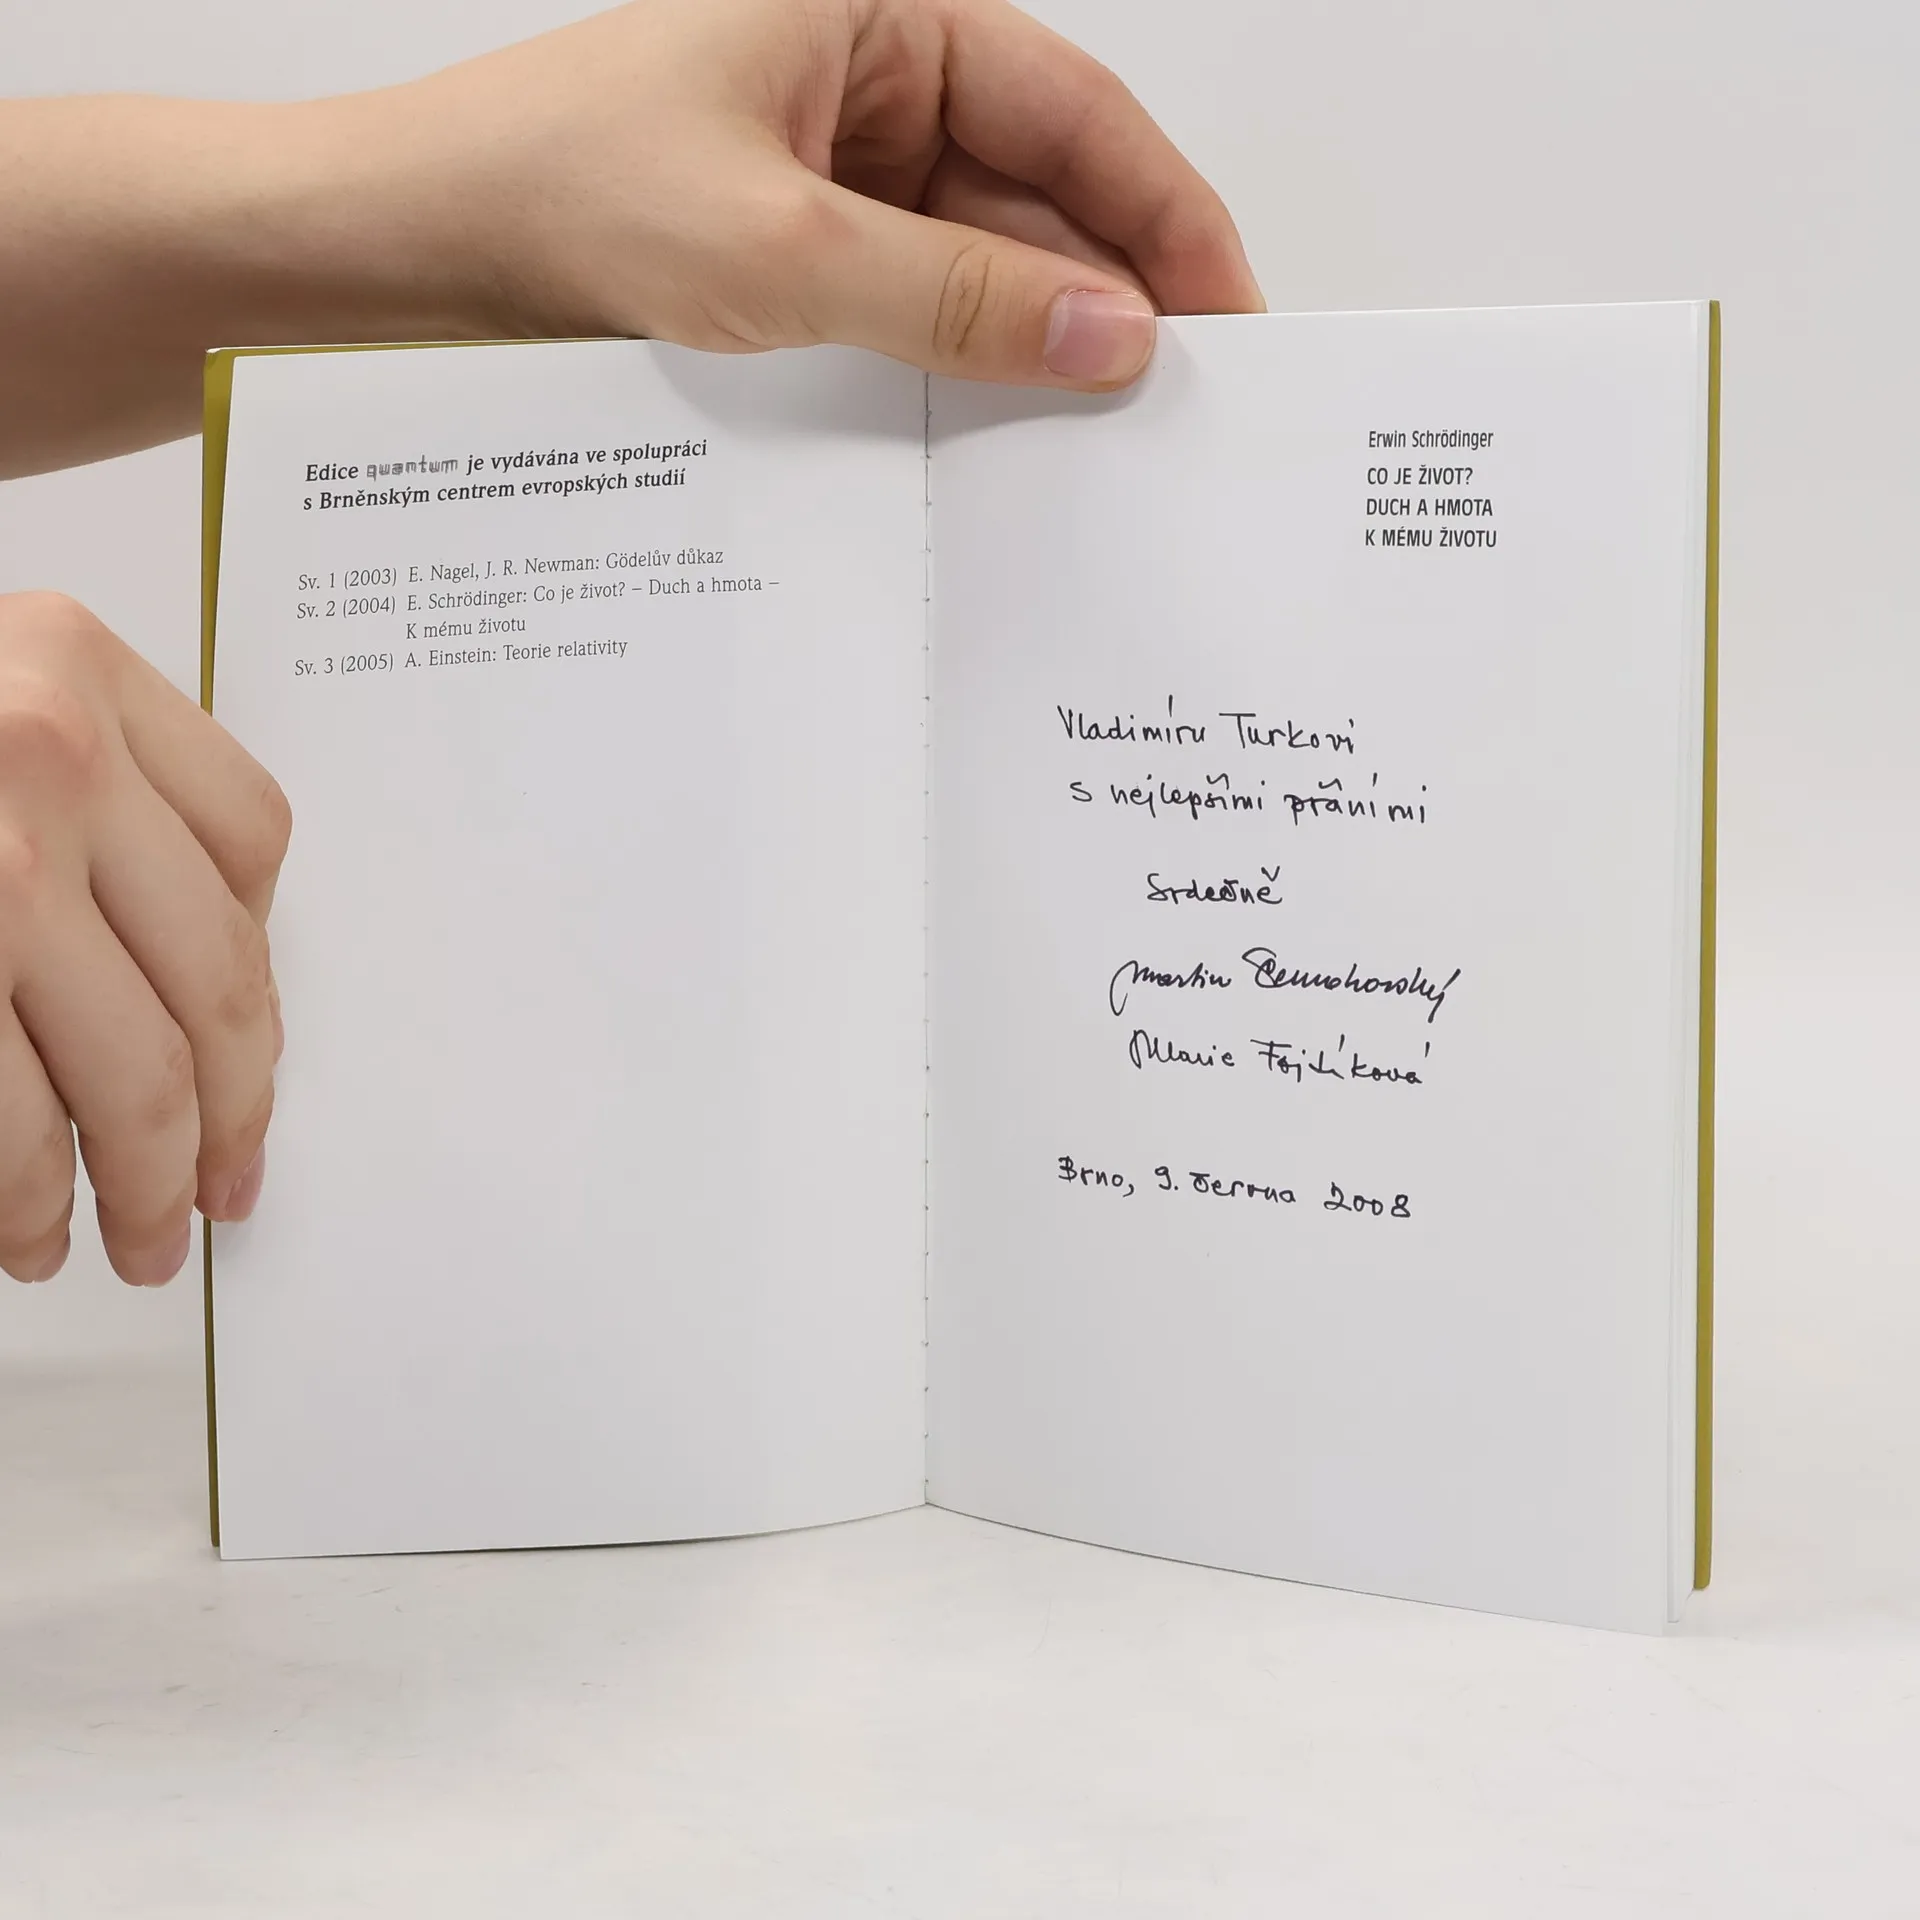 Edice quantum je vydávána ve spolupráci
s Brněnským centrem evropských studií
Sv. 1 (2003) E. Nagel, J. R. Newman: Gödelův důkaz
Sv. 2 (2004) E. Schrödinger: Co je život? – Duch a hmota –
K mému životu
Sv. 3 (2005) A. Einstein: Teorie relativity
Erwin Schrödinger
CO JE ŽIVOT?
DUCH A HMOTA
K MÉMU ŽIVOTU
Vladimíru Turkovi
s nejlepšími přáními
Srdečně
Martin Černohorský
Marie Fojtíková
Brno, 9. června 2008